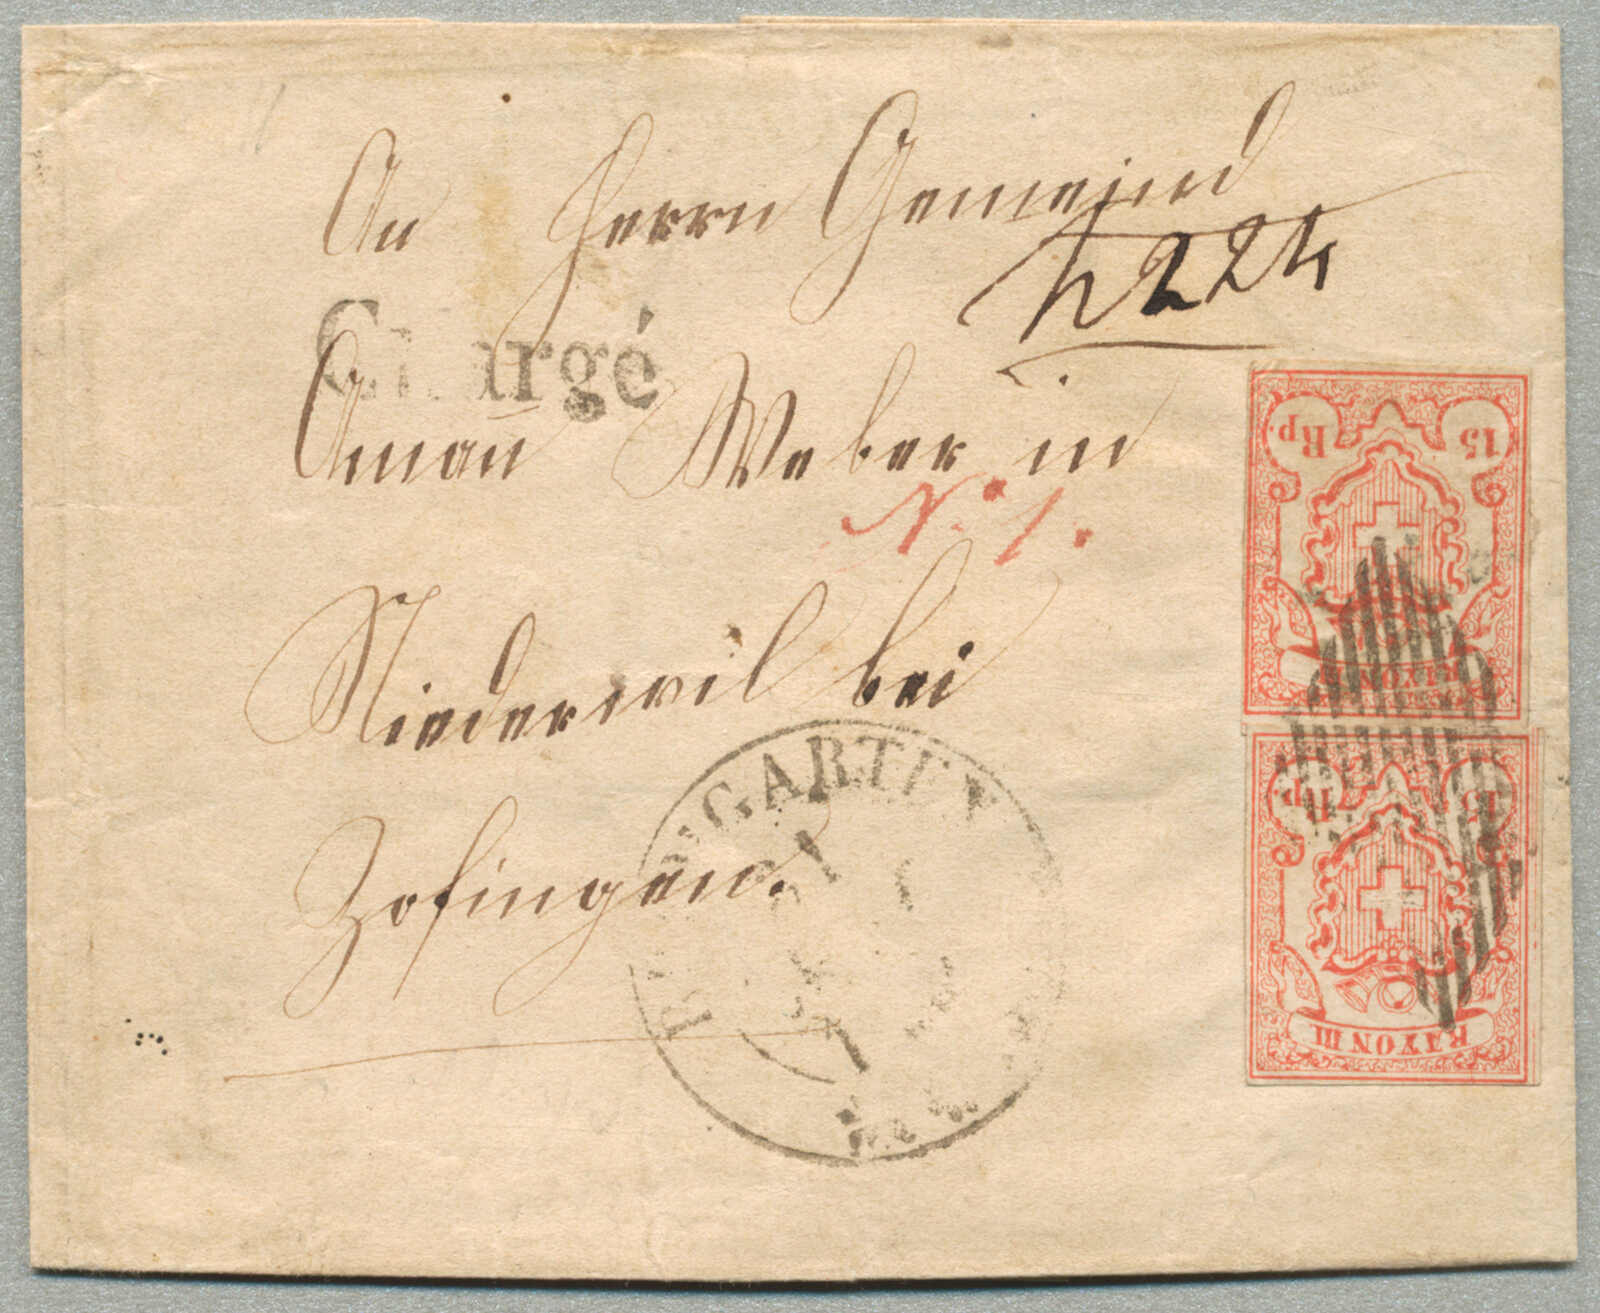 An Herrn Gemeind
h 224
Chargé
Amañ Weber in
N. 1.
Niederwil bei
Zofingen.
BREMGARTEN
15 Rp.
RAYON III
15 Rp.
RAYON III